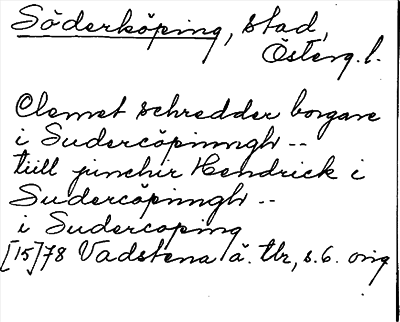 Söderköping, stad,
Österg.l.
Clemet schredder borgare
i Sudercöpinngh --
tiill junchir Hendrick i
Sudercöpinngh --
i Sudercoping
[15]78 Vadstena ä. tlr, s. 6. orig